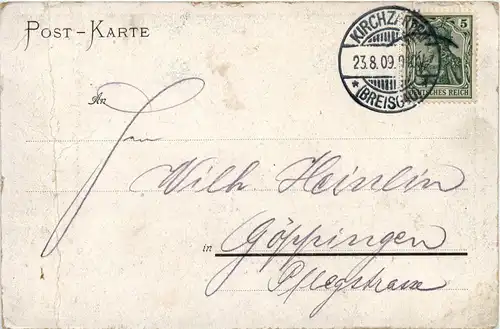 POST-KARTE
5
KIRCHZARTEN
23.8.09.
* BREISGAU *
DEUTSCHES REICH
An
Herrn
Wilh. Heinlin
in Göppingen
Pflegstrasse